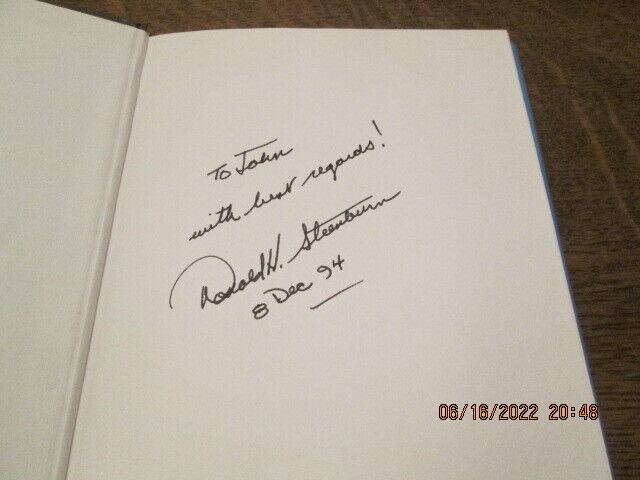 To John
with best regards!
Donald H. Steenburn
8 Dec 94
06/16/2022 20:48